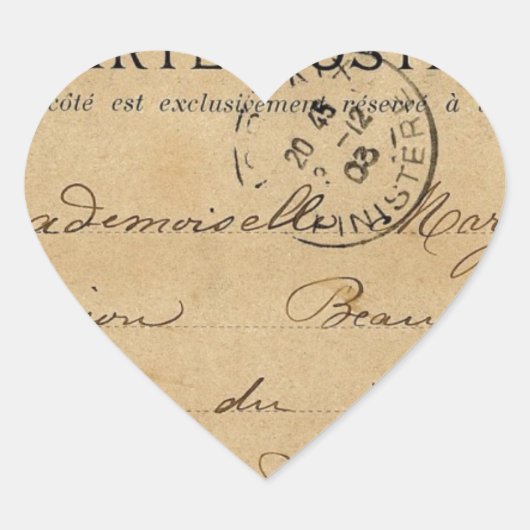 côté est exclusivement réservé à
20 45
-12
03
MINISTÈRE
ademoiselle Mar
ion Beau
du